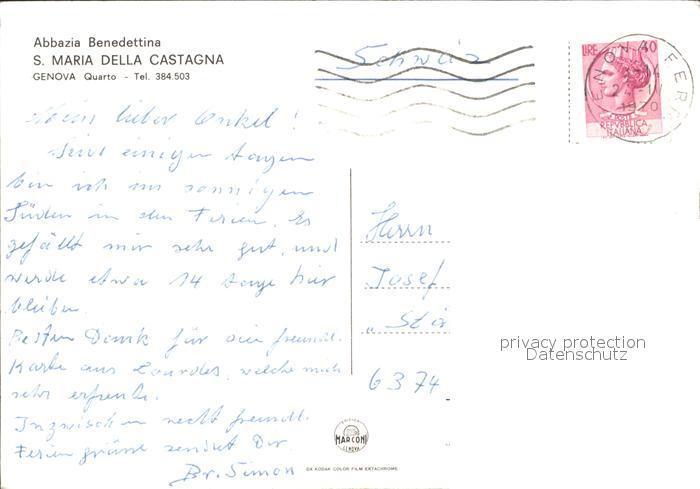 Abbazia Benedettina
S. MARIA DELLA CASTAGNA
GENOVA Quarto - Tel. 384.503
Schweiz
LIRE 40
1970
POSTE
REPVBBLICA
ITALIANA
Mein lieber Onkel!
Seit einigen Tagen
bin ich im sonnigen
Süden in den Ferien. Es
gefällt mir sehr gut, und
werde etwa 14 Tage hier
bleiben.
Besten Dank für die freundl.
Karte aus Lourdes, welche mich
sehr erfreute.
Inzwischen recht freundl.
Feriengrüsse sendet Dir
Br. Simon
Herrn
Josef
6374
privacy protection
Datenschutz
MARCONI
GENOVA
DA KODAK COLOR FILM EKTACHROME